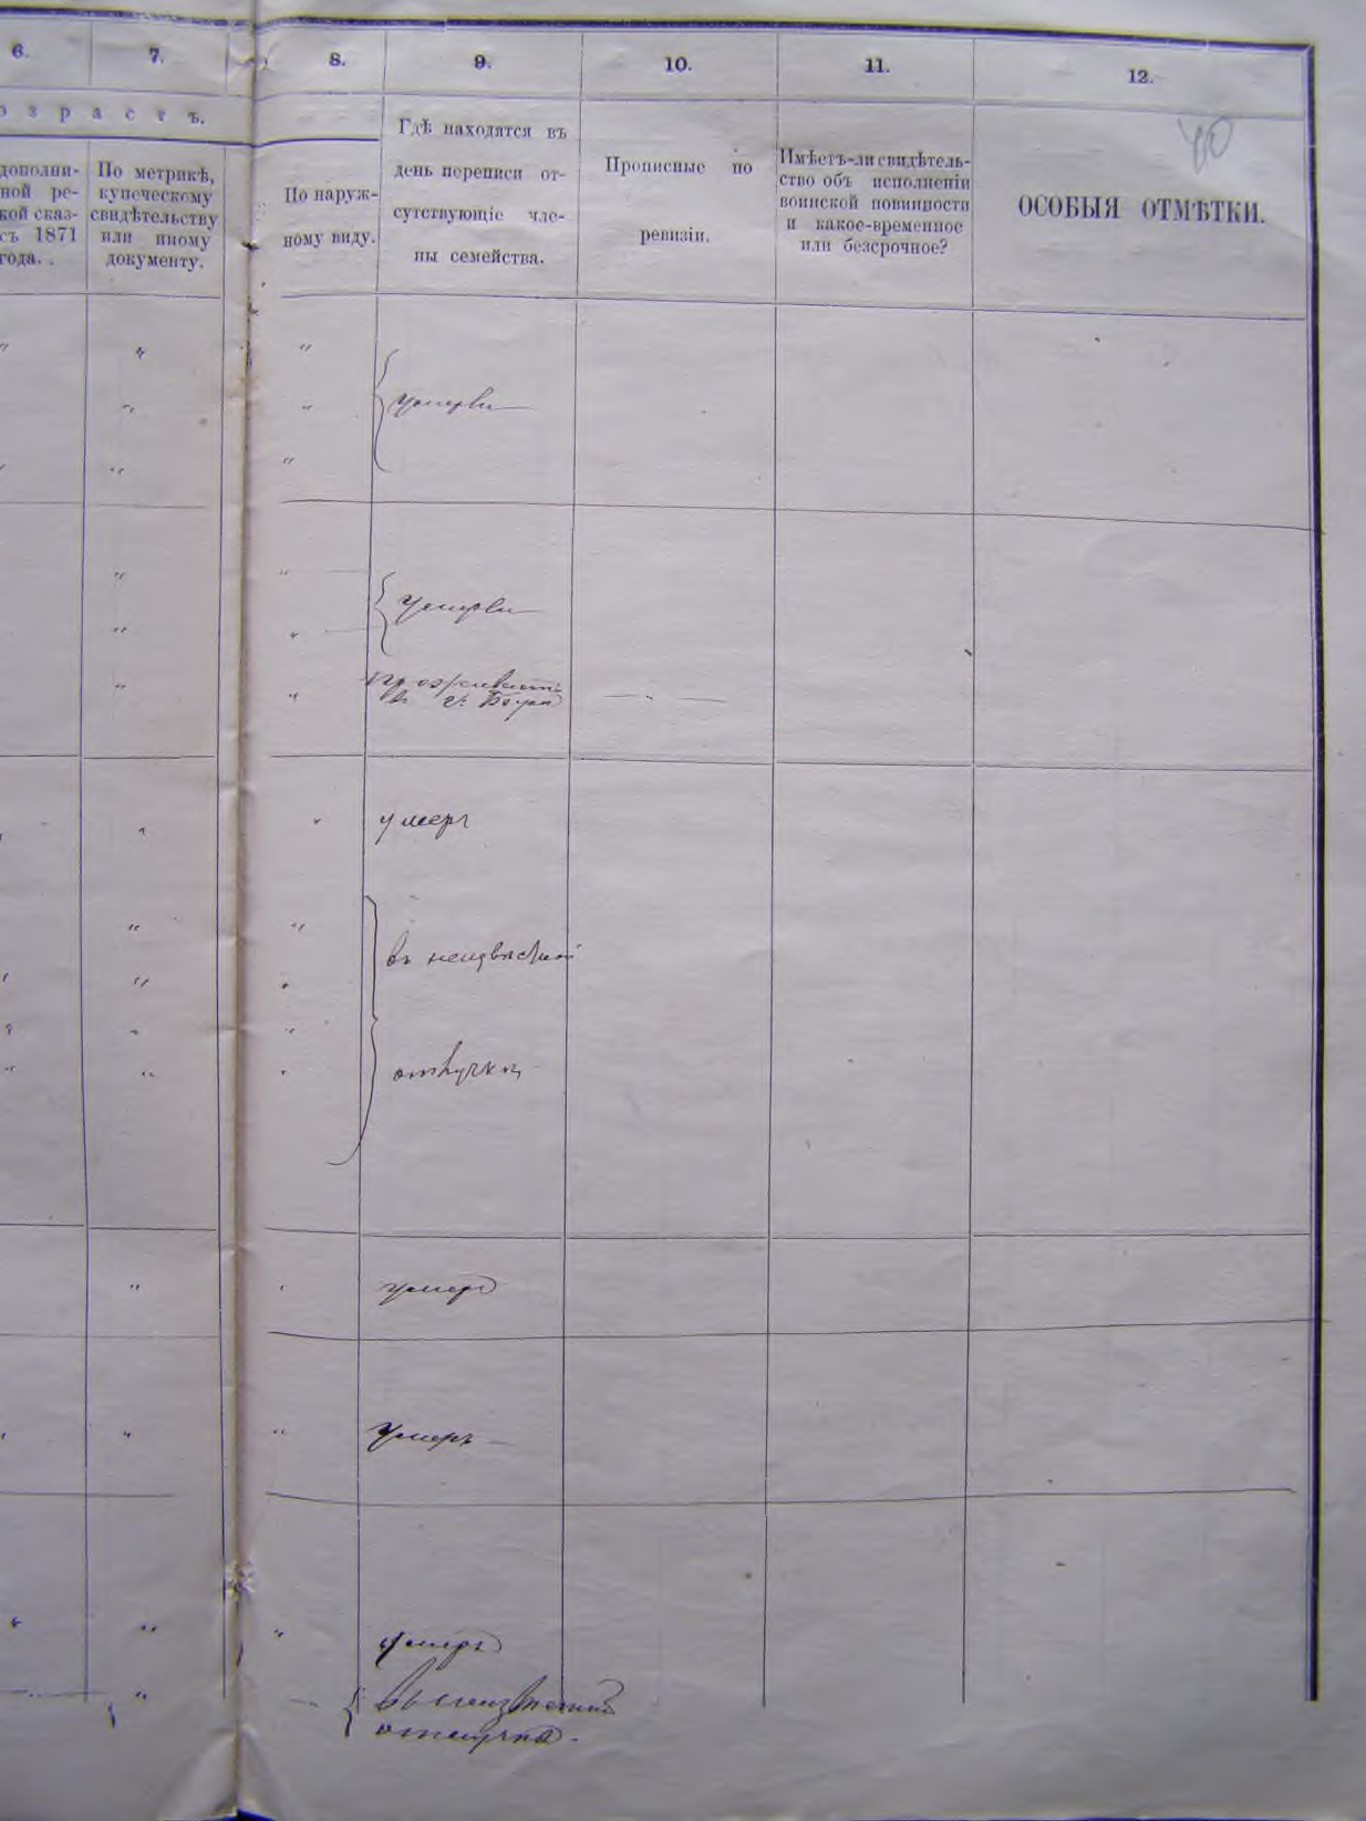 6. 7. 8. 9. 10. 11. 12.
озрастъ.
40
дополни-
ной ре-
кой сказ-
съ 1871
года.
По метрикѣ,
купеческому
свидѣтельству
или иному
документу.
По наруж-
ному виду.
Гдѣ находятся въ
день переписи от-
сутствующіе чле-
ны семейства.
Прописные по
ревизіи.
Имѣетъ-ли свидѣтель-
ство объ исполненіи
воинской повинности
и какое-временное
или безсрочное?
ОСОБЫЯ ОТМѢТКИ.
умерли
умерли
проживаетъ
въ г.
умеръ
въ неизвѣстной
отлучкѣ
умеръ
умеръ
умеръ
въ неизвѣстной
отлучкѣ.